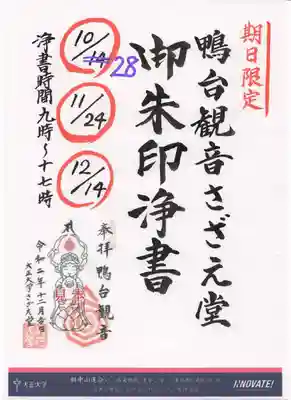 期日限定
鴨台観音さざえ堂
御朱印浄書
10/14 28
11/24
12/14
浄書時間九時～十七時
奉拝 鴨台観音
令和二年十二月吉日
大正大学さざえ堂
大正大学
INNOVATE!